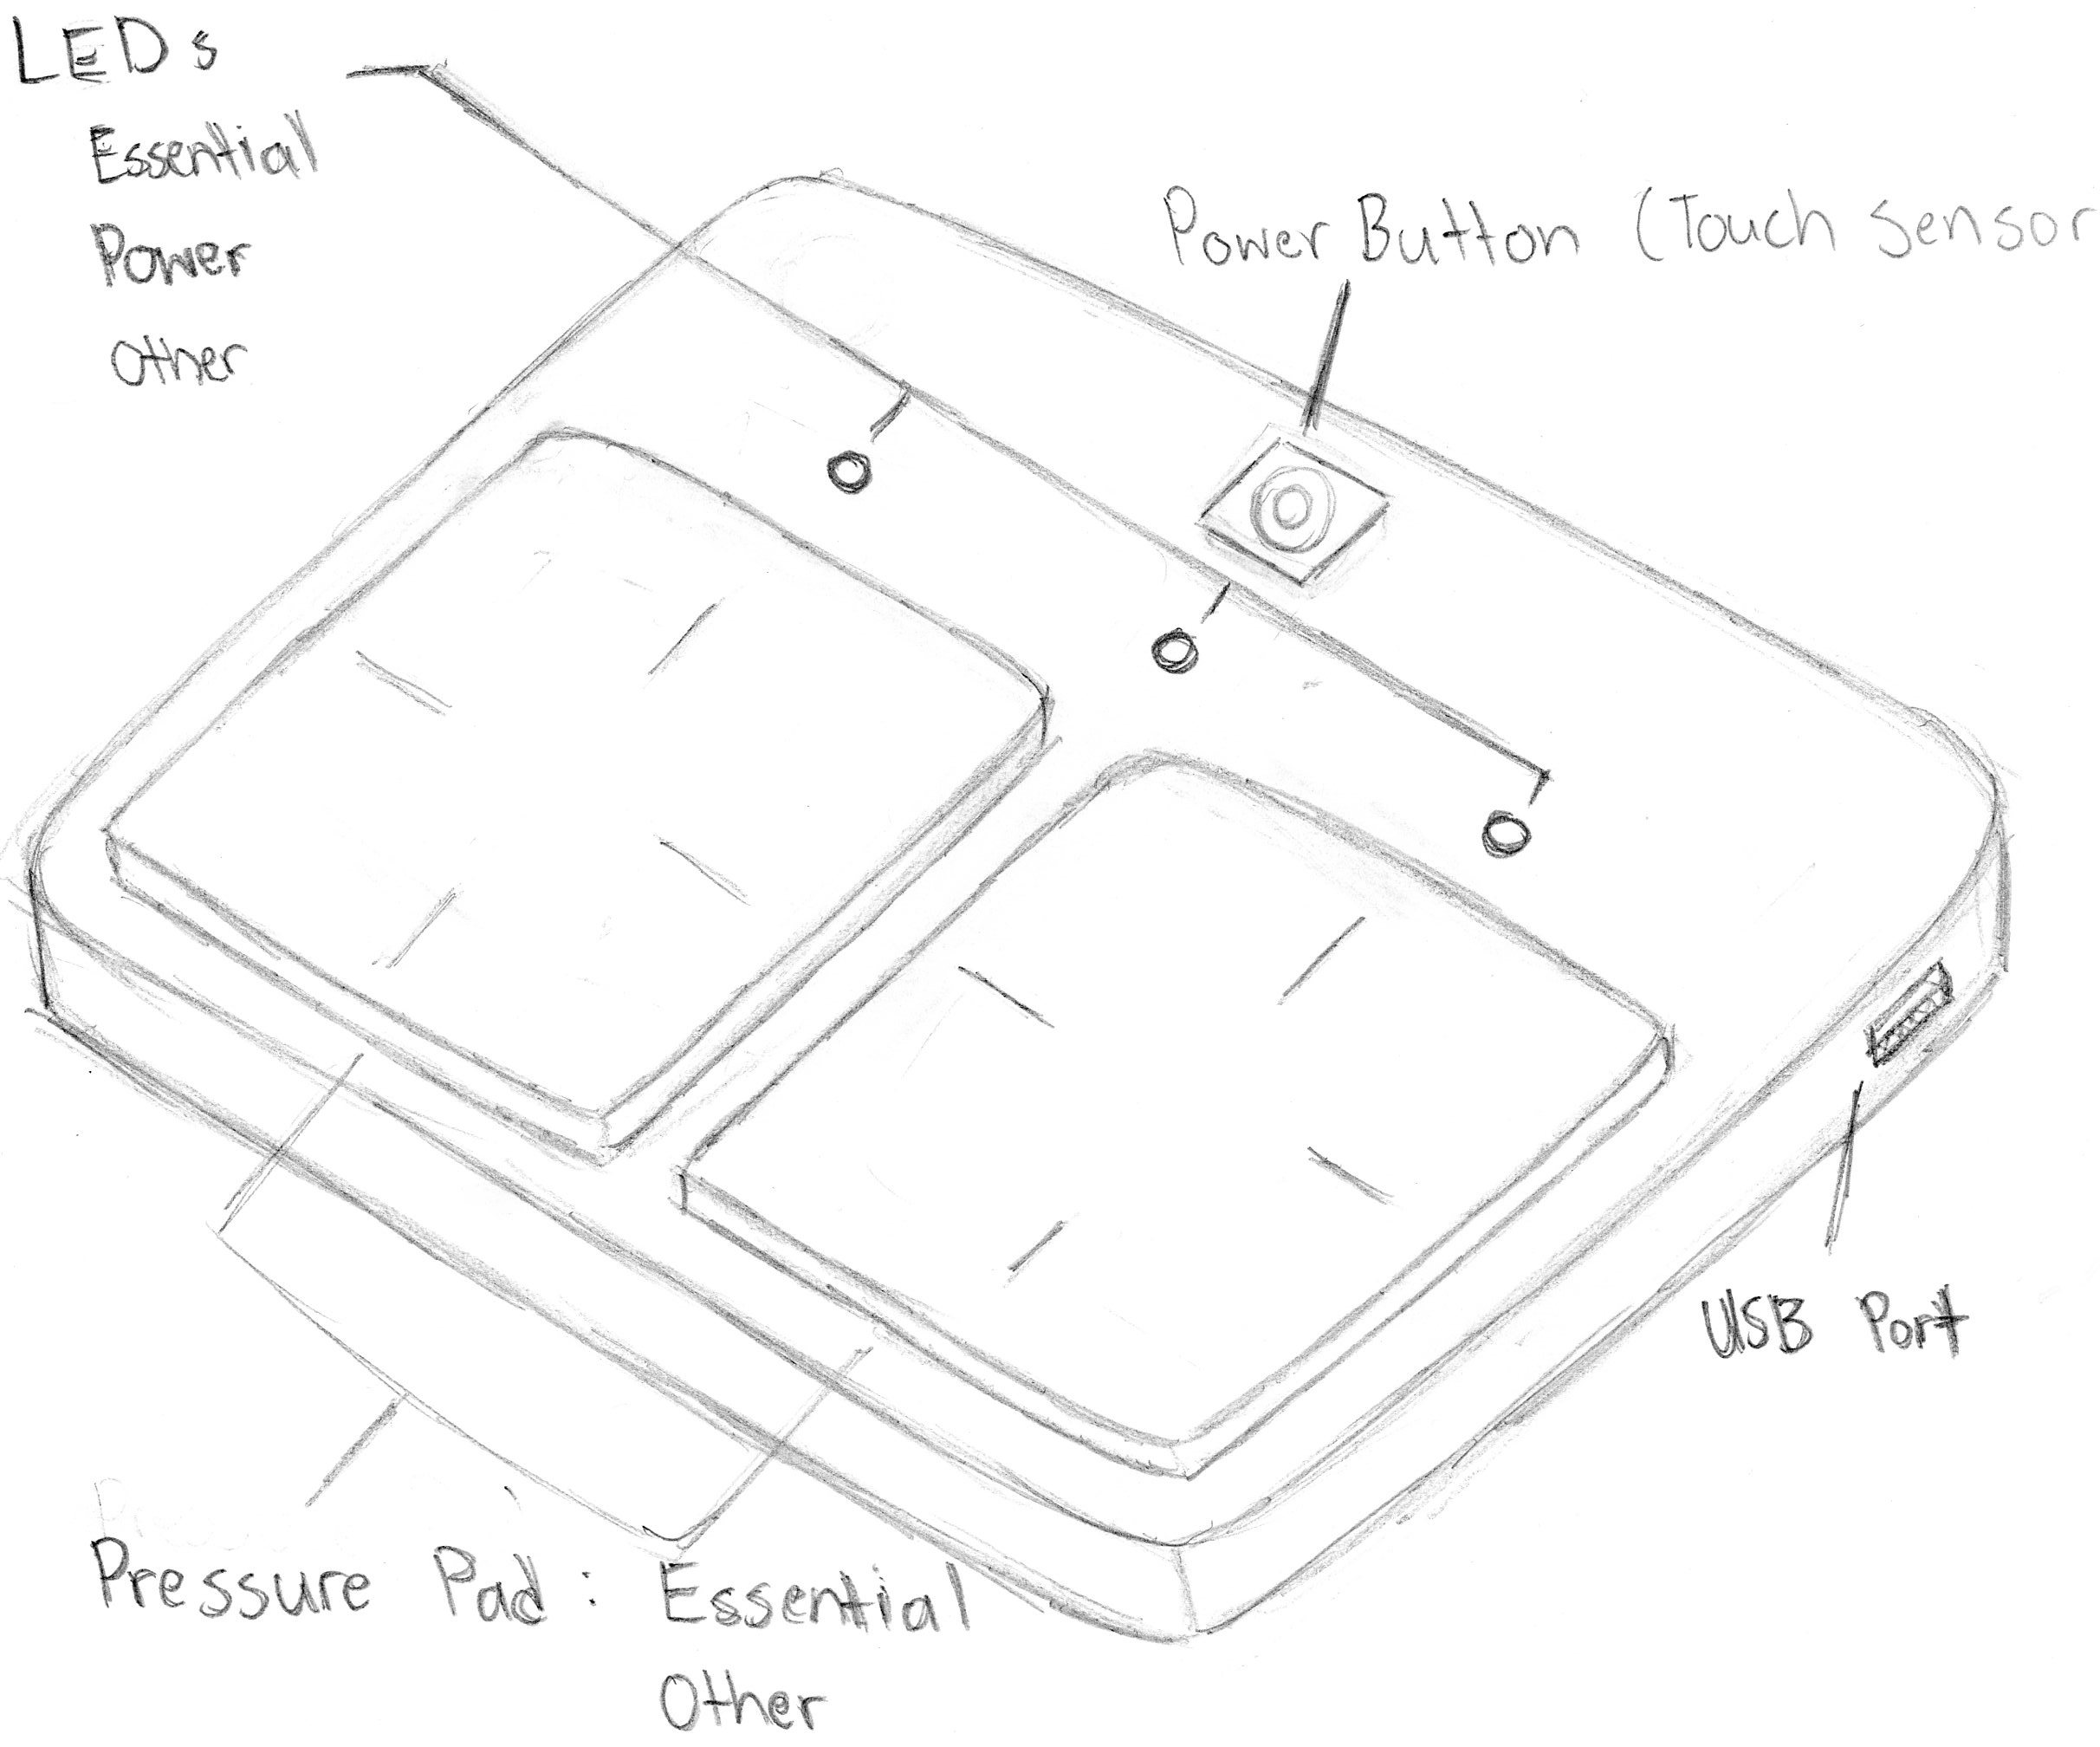 LEDs
Essential
Power
Other
Power Button (Touch sensor
USB Port
Pressure Pad: Essential
Other